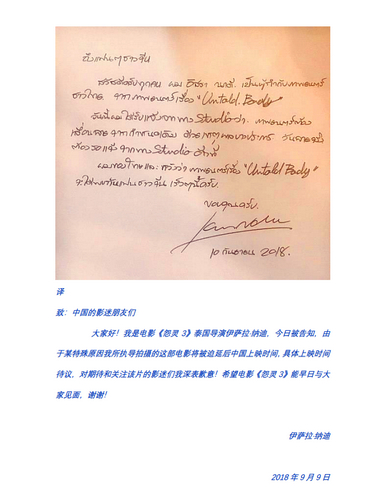 ถึงแฟนๆชาวจีน
สวัสดีครับทุกคน ผม อิสรา นาดี เป็นผู้กำกับภาพยนตร์
ชาวไทย จากภาพยนตร์เรื่อง "Untold Body"
วันนี้ผมได้รับแจ้งจากทาง Studio ว่า ภาพยนตร์ต้อง
เลื่อนฉาย จากกำหนดเดิม
ต้องรอแจ้งจากทาง Studio อีกที
ผมขอโทษและหวังว่า ภาพยนตร์เรื่อง "Untold Body"
จะได้พบกับแฟนชาวจีน เร็วๆนี้ครับ
ขอบคุณครับ
10 กันยายน 2018.
译
致：中国的影迷朋友们
大家好！我是电影《怨灵 3》泰国导演伊萨拉·纳迪，今日被告知，由
于某特殊原因我所执导拍摄的这部电影将被迫延后中国上映时间，具体上映时间
待议，对期待和关注该片的影迷们我深表歉意！希望电影《怨灵 3》能早日与大
家见面，谢谢！
伊萨拉·纳迪
2018 年 9 月 9 日